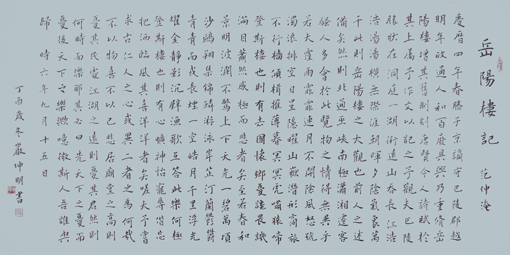 岳陽樓記 范仲淹
慶曆四年春滕子京謫守巴陵郡越
明年政通人和百廢具興乃重修岳
陽樓增其舊制刻唐賢今人詩賦於
其上屬予作文以記之予觀夫巴陵
勝狀在洞庭一湖銜遠山吞長江浩
浩湯湯橫無際涯朝暉夕陰氣象萬
千此則岳陽樓之大觀也前人之述
備矣然則北通巫峽南極瀟湘遷客
騷人多會於此覽物之情得無異乎
若夫霪雨霏霏連月不開陰風怒號
濁浪排空日星隱曜山岳潛形商旅
不行檣傾楫摧薄暮冥冥虎嘯猿啼
登斯樓也則有去國懷鄉憂讒畏譏
滿目蕭然感極而悲者矣至若春和
景明波瀾不驚上下天光一碧萬頃
沙鷗翔集錦鱗游泳岸芷汀蘭鬱鬱
青青而或長煙一空皓月千里浮光
耀金靜影沉璧漁歌互答此樂何極
登斯樓也則有心曠神怡寵辱偕忘
把酒臨風其喜洋洋者矣嗟夫予嘗
求古仁人之心或異二者之為何哉
不以物喜不以己悲居廟堂之高則
憂其民處江湖之遠則憂其君然則
何時而樂耶其必曰先天下之憂而
憂後天下之樂歟噫微斯人吾誰與
歸 時六年九月十五日
丁酉歲冬 嚴坤明書